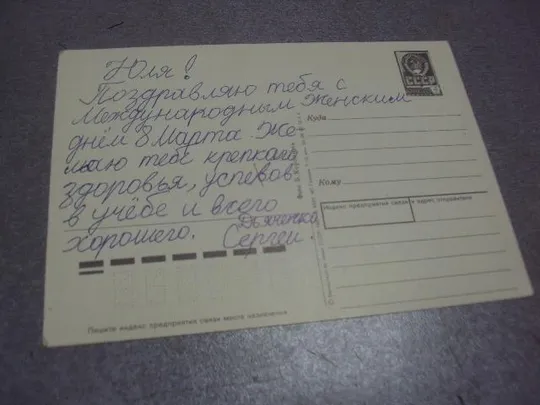 Юля!
Поздравляю тебя с
Международным Женским
днём 8 Марта. Же
лаю тебе крепкого
здоровья, успехов
в учёбе и всего
хорошего. Дьяченко
Сергей.
СССР
Куда
Кому
Индекс предприятия связи и адрес отправителя
Пишите индекс предприятия связи места назначения